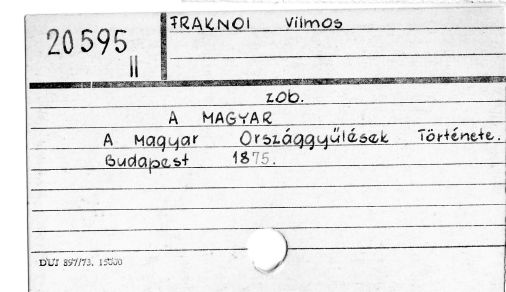 20595
II
FRAKNOI Vilmos
zob.
A MAGYAR
A Magyar Országgyűlések Története.
Budapest 1875.
DUJ 897/73. 15000